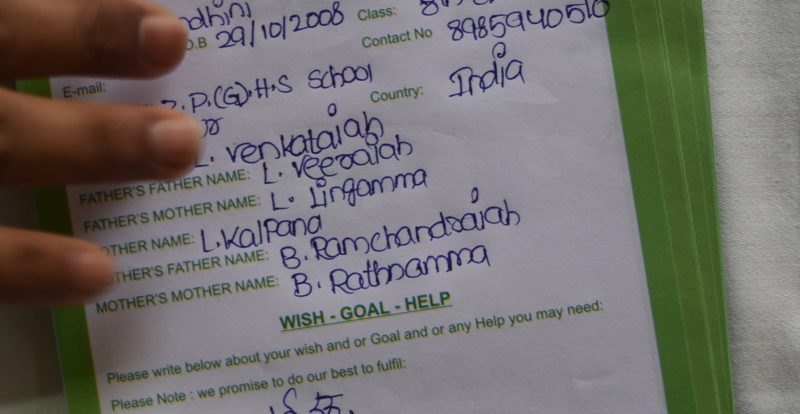 D.B 29/10/2008 Class:
Contact No 8985940510
E-mail:
P.(G).H.S School
Country: India
L. Venkataiah
FATHER'S FATHER NAME: L. Veeraiah
FATHER'S MOTHER NAME: L. Lingamma
OTHER NAME: L. Kalpana
THER'S FATHER NAME: B. Ramchandraiah
MOTHER'S MOTHER NAME: B. Rathnamma
WISH - GOAL - HELP
Please write below about your wish and or Goal and or any Help you may need:
Please Note : we promise to do our best to fulfil: